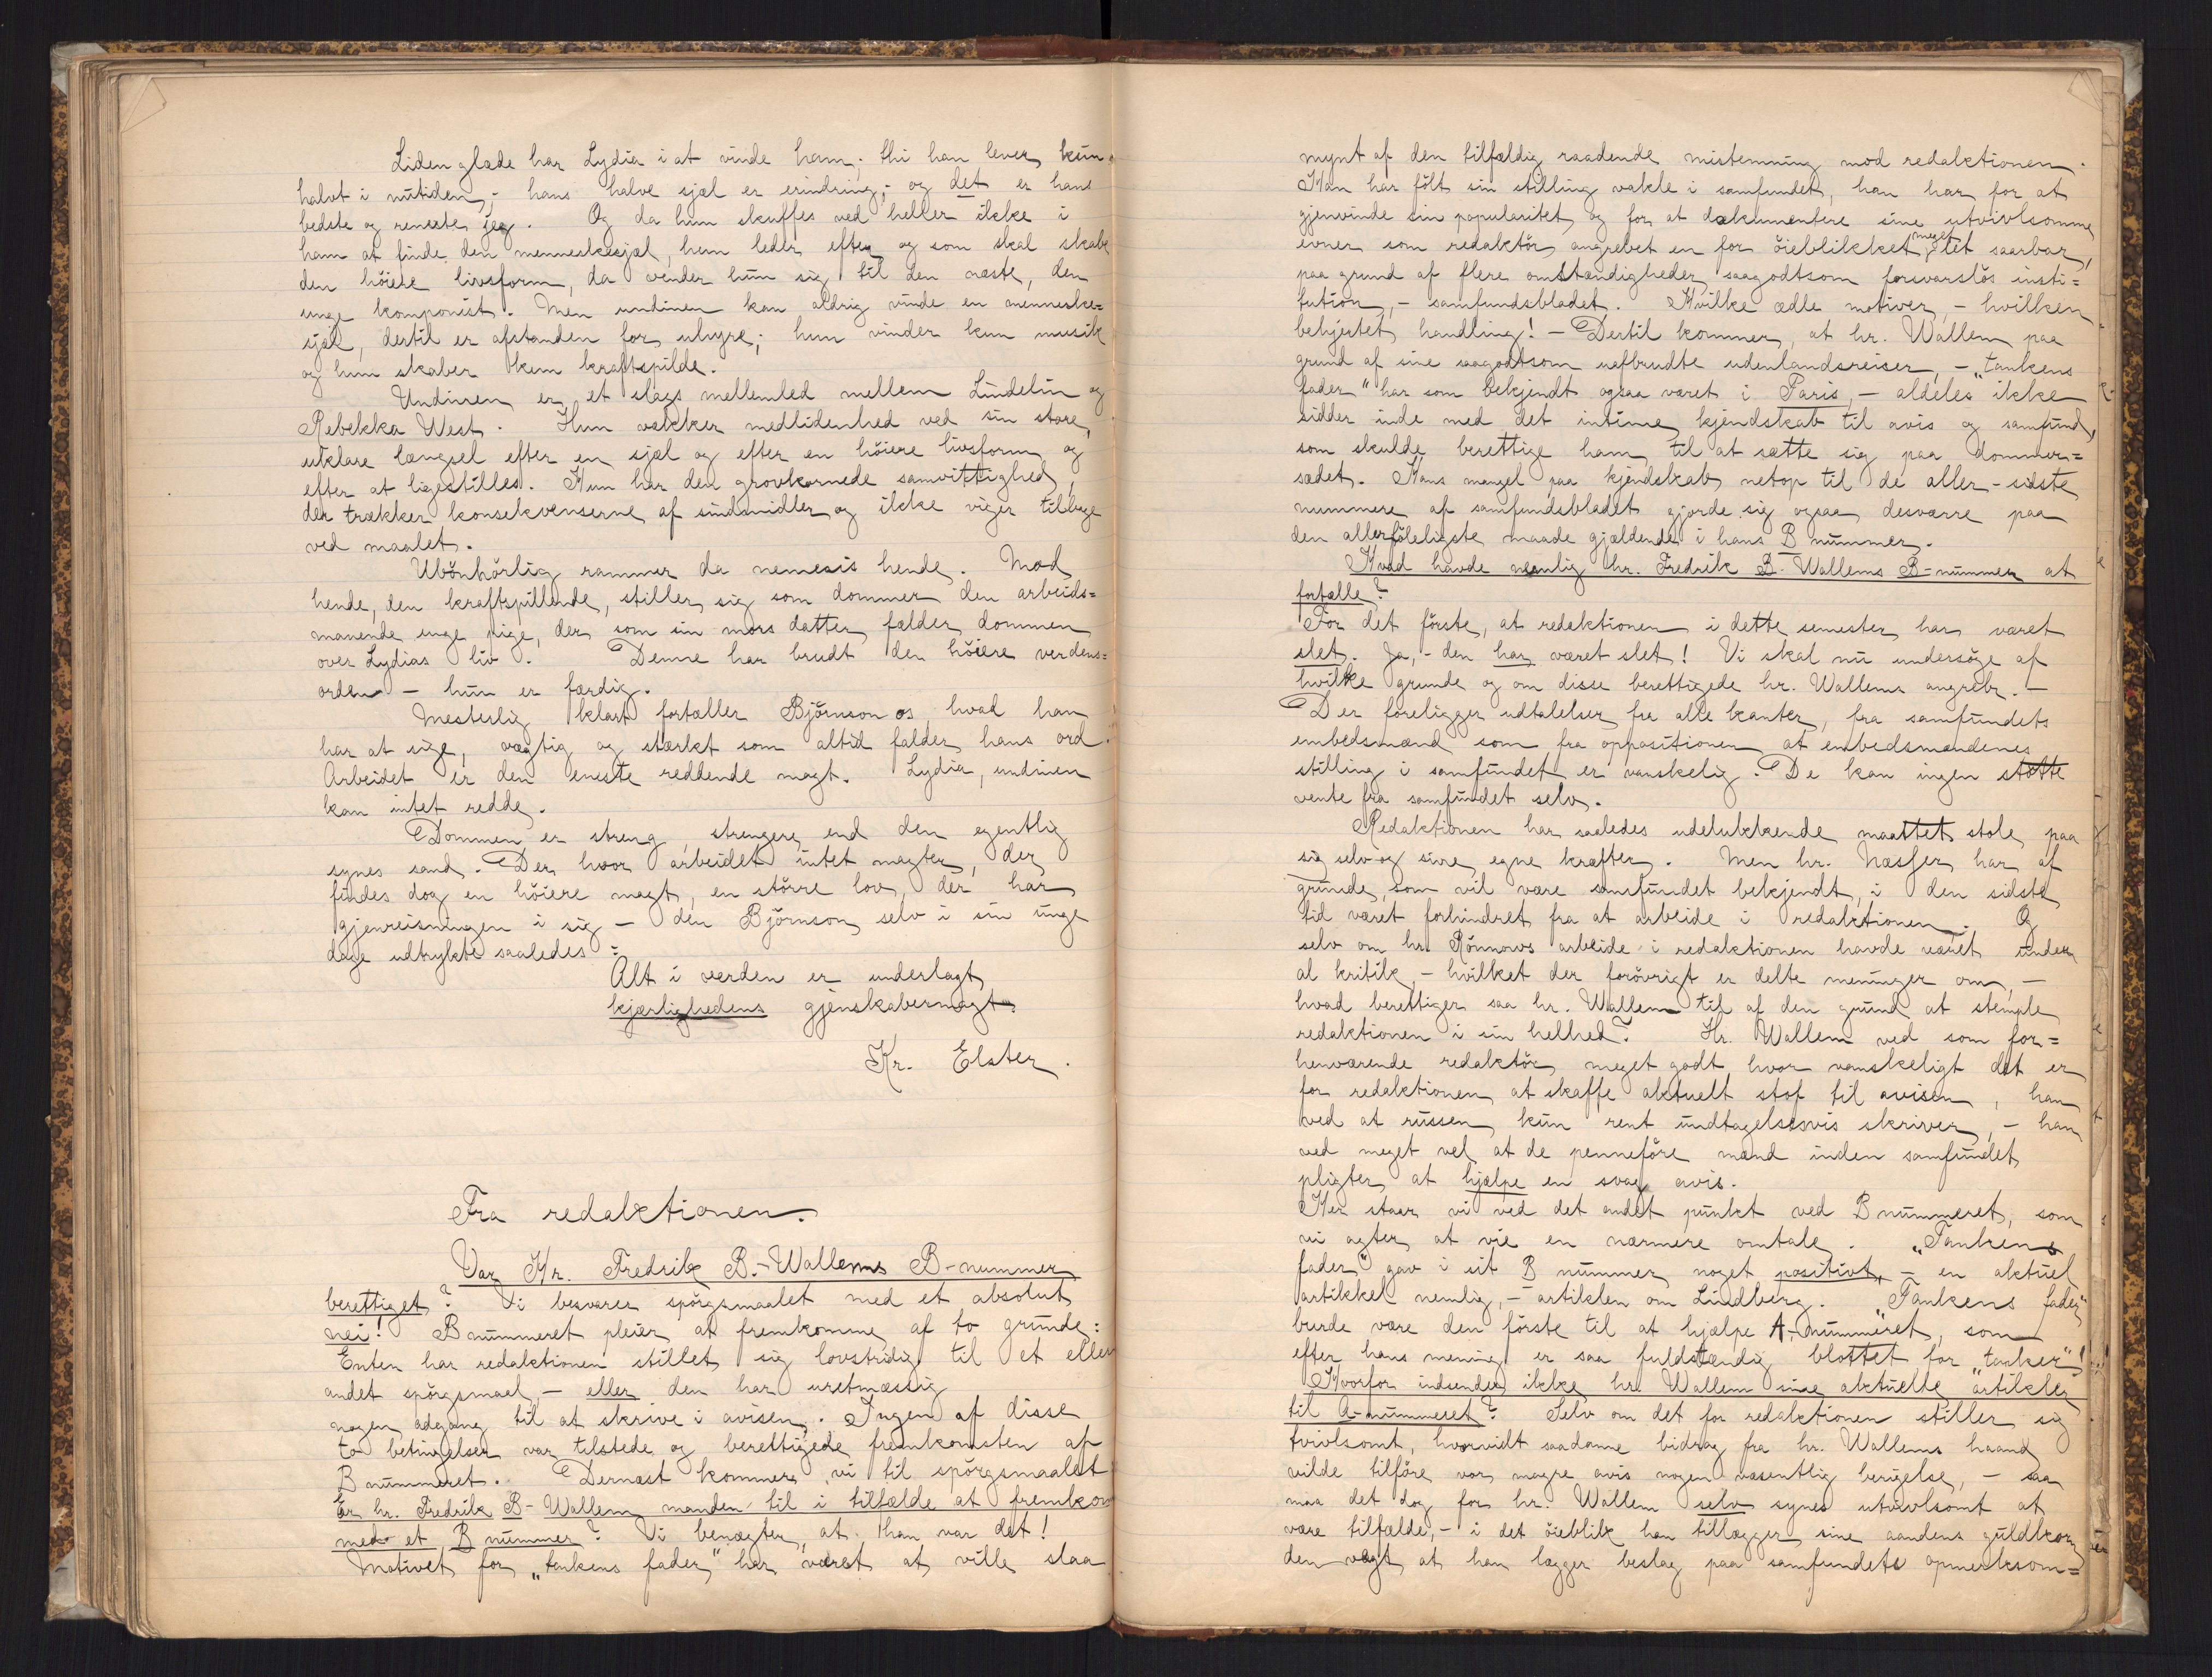 Liden glæde har Lydia i at vinde ham; thi han lever kun
halvt i nutiden, – hans halve sjæl er erindring; og det er hans
bedste og reneste jeg. Og da hun skuffes ved heller ikke i
ham at finde den menneskesjæl, hun leder efter og som skal skabe
den höiere livsform, da vender hun sig til den næste, den
unge komponist. Men undinen kan aldrig vinde en menneske=
sjæl, dertil er afstanden for uhyre; hun vinder kun musik
og hun skaber kun kraftspilde.
Undinen er et slags mellemled mellem Lindelin og
Rebekka West. Hun vækker medlidenhed ved sin store,
uklare længsel efter en sjæl og efter en höiere livsform og
efter at ligestilles. Hun har den grovkornede samvittighed,
der trækker konsekvenserne af sindsmidler og ikke viger tilbage
ved maalet.
Ubönhörlig rammer da nemesis hende. Mod
hende, den kraftspillende, stiller sig som dommer den arbeids=
manende unge pige, der som sin mors datter fælder dommen
over Lydias liv. Denne har brudt den höiere verdens=
orden – hun er færdig.
Mesterlig klart fortæller Björnson os, hvad han
har at sige, vægtig og stærkt som altid falder hans ord.
Arbeidet er den eneste reddende magt. Lydia, undinen
kan intet redde.
Dommen er streng, strengere end den egentlig
synes sand. Der, hvor arbeidet intet magter, der
findes dog en höiere magt, en större lov, der har
gjenreisningen i sig – den Björnson selv i sin unge
dage udtrykte saaledes:
Alt i verden er underlagt
kjærlighedens gjenskabermagt.
Kr. Elster.
Fra redaktionen.
Var Hr. Fredrik B.-Wallems B-nummer
berettiget? Vi besvarer spörgsmaalet med et absolut
nei! B nummeret pleier at fremkomme af to grunde:
Enten har redaktionen stillet sig lovstridig til et eller
andet spörgsmaal, – eller den har uretmæssig
nogen adgang til at skrive i avisen. Ingen af disse
to betingelser var tilstede og berettigede fremkomsten af
B nummeret. Dernæst kommer vi til spörgsmaalet
Er hr. Fredrik B-Wallem manden til i tilfælde at fremkom
med et B nummer? Vi benægter, at han var det!
Motivet for „tankens fader" har været at ville slaa
mynt af den tilfældig raadende mistemning mod redaktionen.
Han har fölt sin stilling vakle i samfundet, han har for at
gjenvinde sin popularitet og for at dokumentere sine utvivlsomme
evner som redaktör angrebet en for öieblikket meget let saarbar,
paa grund af flere omstændigheder saagodtsom forsvarslös insti=
tution, – samfundsbladet. Hvilke ædle motiver, – hvilken
behjertet handling! – Dertil kommer, at hr. Wallem paa
grund af sine saagodtsom uafbrudte udenlandsreiser, – „tankens
fader" har som bekjendt ogsaa været i Paris, – aldeles ikke
sidder inde med det intime kjendskab til avis og samfund,
som skulde berettige ham til at sætte sig paa dommer=
sædet. Hans mangel paa kjendskab netop til de aller-sidste
nummere af samfundsbladet gjorde sig ogsaa desværre paa
den allerföleligste maade gjældende i hans B nummer.
Hvad havde nemlig hr. Fredrik B.-Wallems B-nummer at
fortælle?
For det förste, at redaktionen i dette semester har været
slet. Ja, – den har været slet! Vi skal nu undersöge af
hvilke grunde og om disse berettigede hr. Wallems angreb. –
Der foreligger udtalelser fra alle kanter, fra samfundets
embedsmænd som fra oppositionen at embedsmændenes
stilling i samfundet er vanskelig. De kan ingen stötte
vente fra samfundet selv.
Redaktionen har saaledes udelukkende maattet stole paa
sig selv og sine egne kræfter. Men hr. Næsfer har af
grunde, som vil være samfundet bekjendt, i den sidste
tid været forhindret fra at arbeide i redaktionen. Og
selv om hr. Rönnows arbeide i redaktionen havde været under
al kritik, – hvilket der forövrigt er delte meninger om, –
hvad berettiger saa hr. Wallem til af den grund at stemple
redaktionen i sin helhed? Hr. Wallem ved som for=
henværende redaktör meget godt hvor vanskeligt det er
for redaktionen at skaffe aktuelt stof til avisen, han
ved at russen kun rent undtagelsesvis skriver, – han
ved meget vel at de penneföre mænd inden samfundet
pligter at hjælpe en svag avis.
Her staar vi ved det andet punkt ved B nummeret, som
vi agter at vie en nærmere omtale. „Tankens
fader" gav i sit B nummer noget positivt, – en aktuel
artikkel nemlig, – artiklen om Lindberg. „Tankens fader"
burde være den förste til at hjælpe A-nummeret, som
efter hans mening er saa fuldstændig blottet for „tanker"!
Hvorfor indsender ikke hr. Wallem sine aktuelle artikler
til A-nummeret? Selv om det for redaktionen stiller sig
tvivlsomt, hvorvidt saadanne bidrag fra hr. Wallems haand
vilde tilföre vor magre avis nogen væsentlig berigelse, – saa
maa det dog for hr. Wallem selv synes utvivlsomt at
være tilfælde, – i det öieblik han tillægger sine aandens guldkorn
den vægt at han lægger beslag paa samfundets opmerksom=